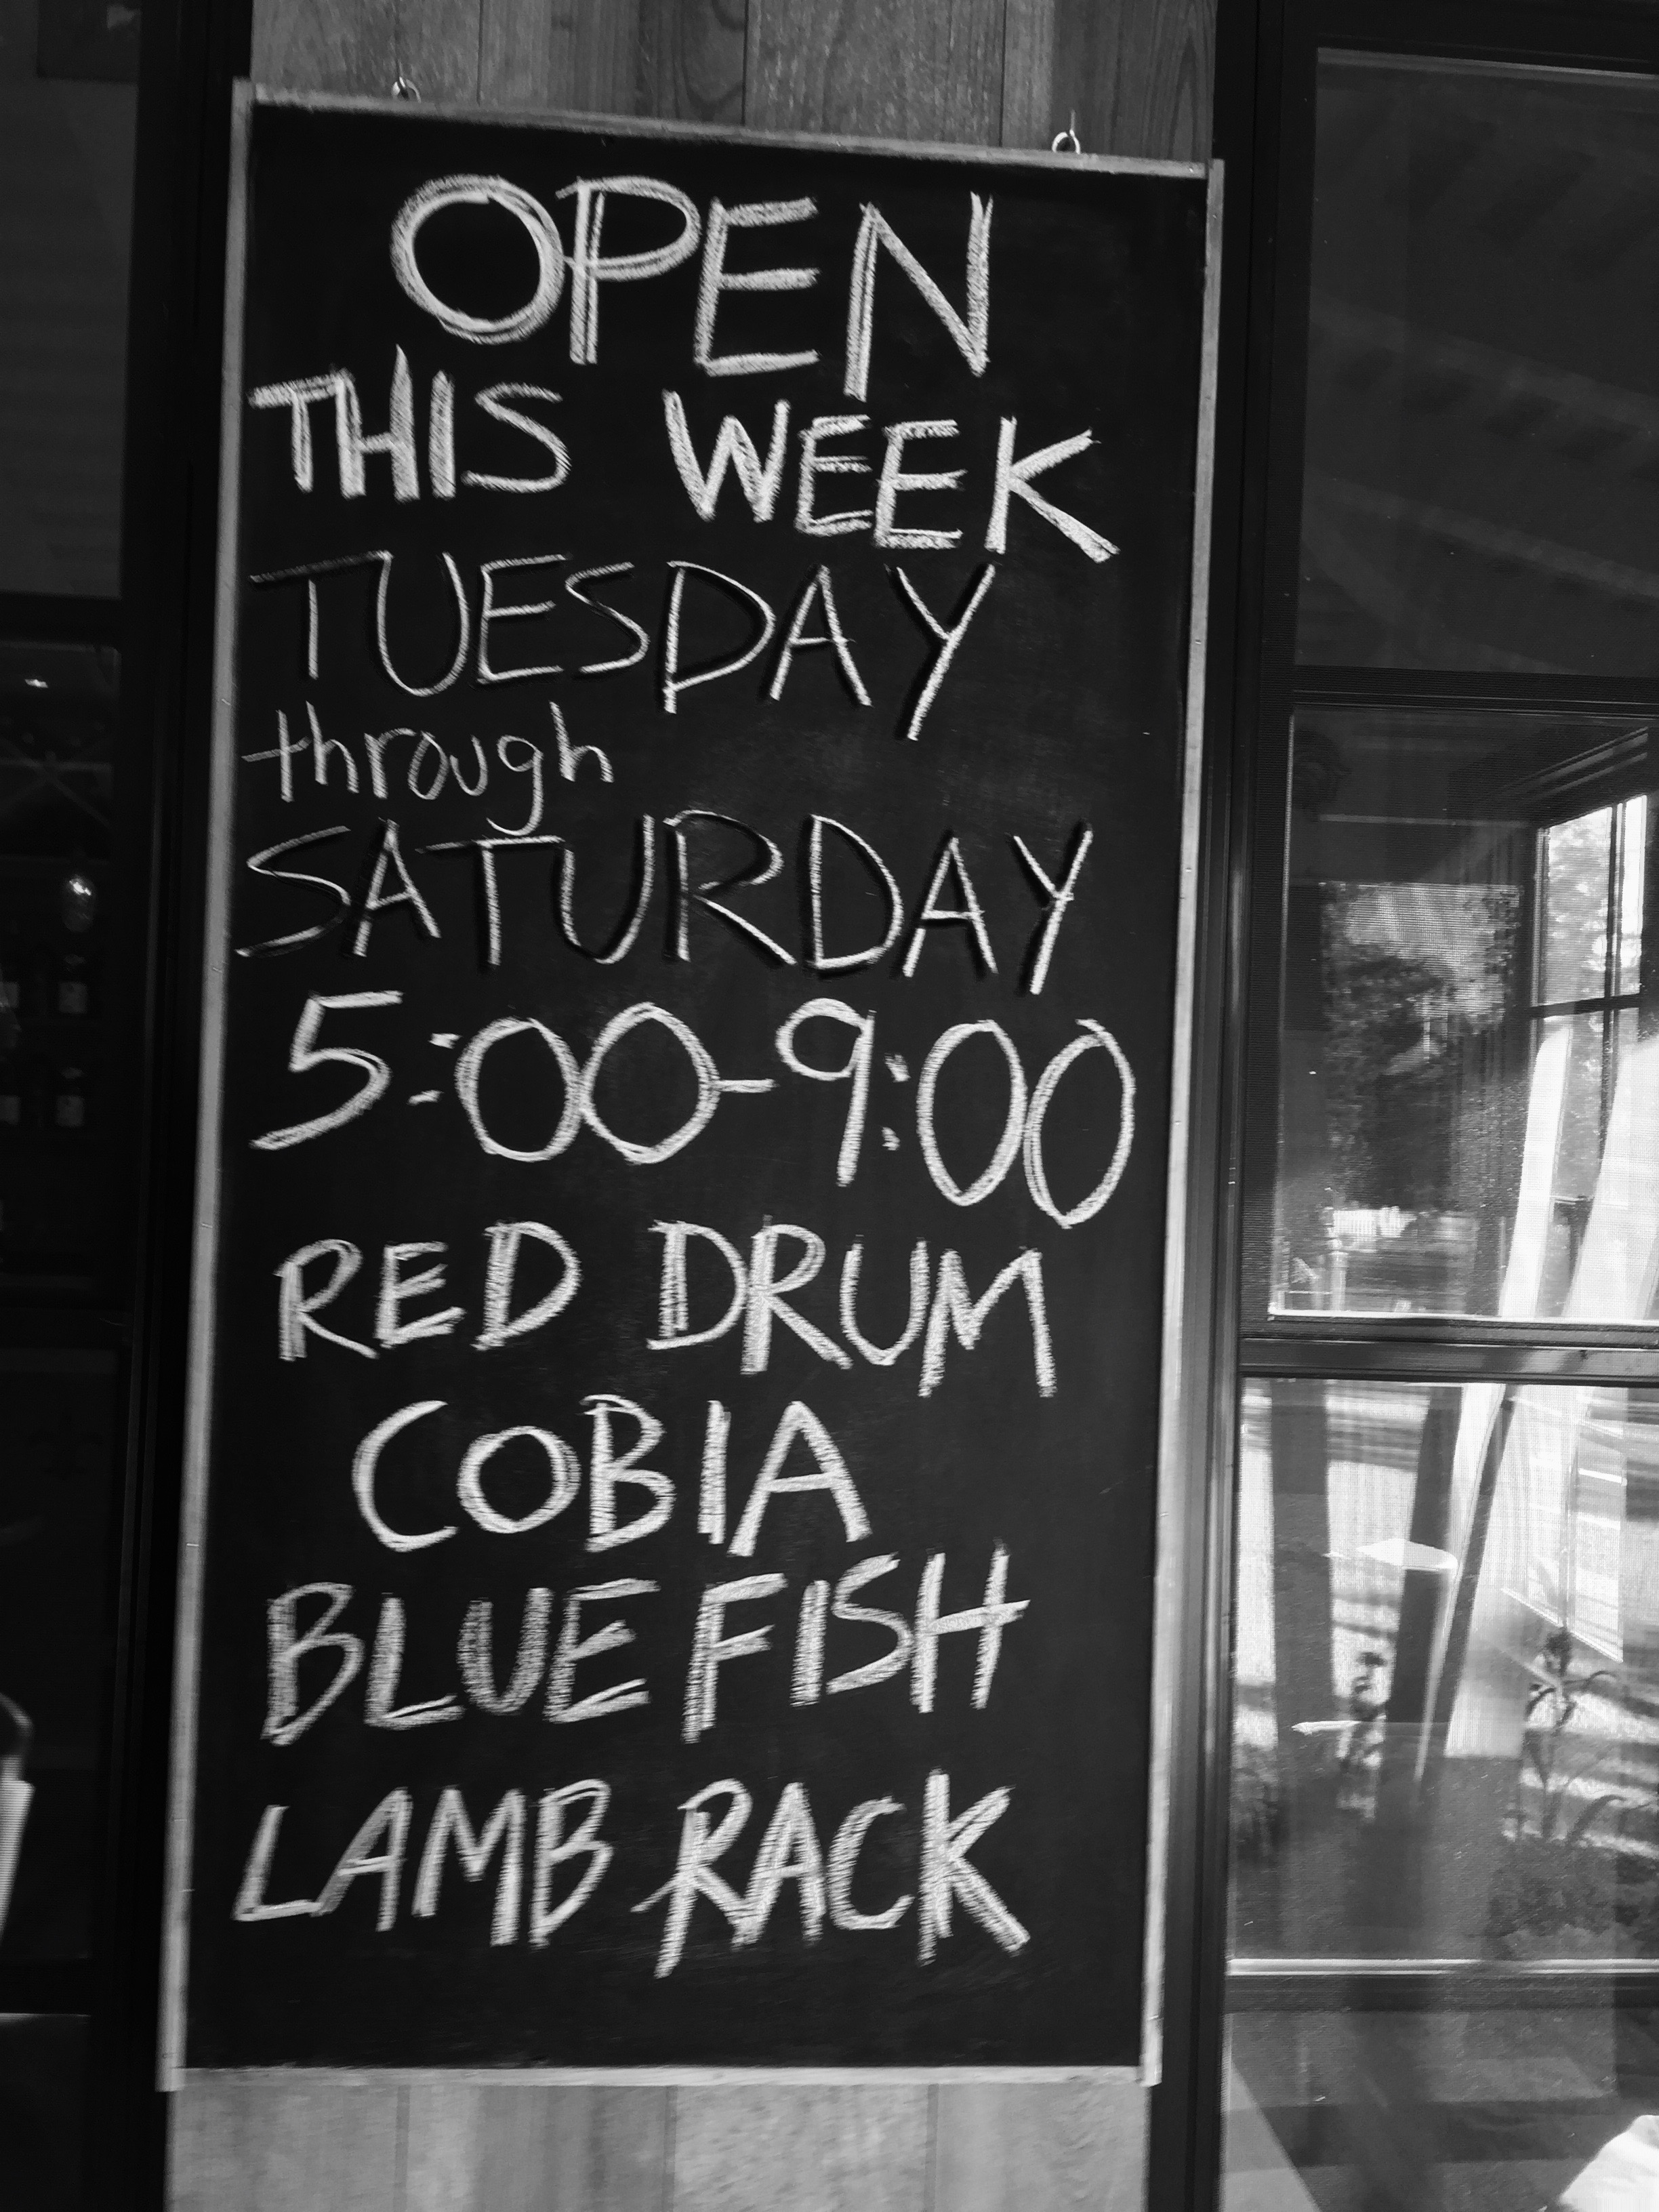 OPEN
THIS WEEK
TUESDAY
through
SATURDAY
5:00-9:00
RED DRUM
COBIA
BLUE FISH
LAMB RACK